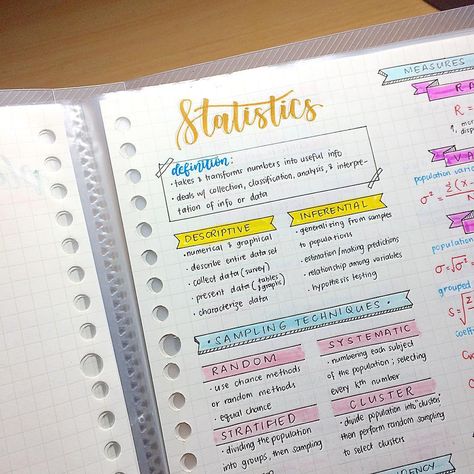 Statistics
definition:
• takes & transforms numbers into useful info
• deals w/ collection, classification, analysis, & interpre-
tation of info or data
DESCRIPTIVE
• numerical & graphical
• describe entire data set
• collect data (survey)
• present data (tables & graphs)
• characterize data
INFERENTIAL
• generalizing from samples
to populations
• estimation/making predictions
• relationship among variables
• hypothesis testing
SAMPLING TECHNIQUES
RANDOM
• use chance methods
or random methods
• equal chance
STRATIFIED
• dividing the population
into groups, then sampling
SYSTEMATIC
• numbering each subject
of the population ; selecting
every kth number
CLUSTER
• divide population into "clusters"
then perform random sampling
to select clusters
MEASURES
RA
R =
VA
population varia
σ² =
population
σ = √σ²
grouped
S =
coeffi